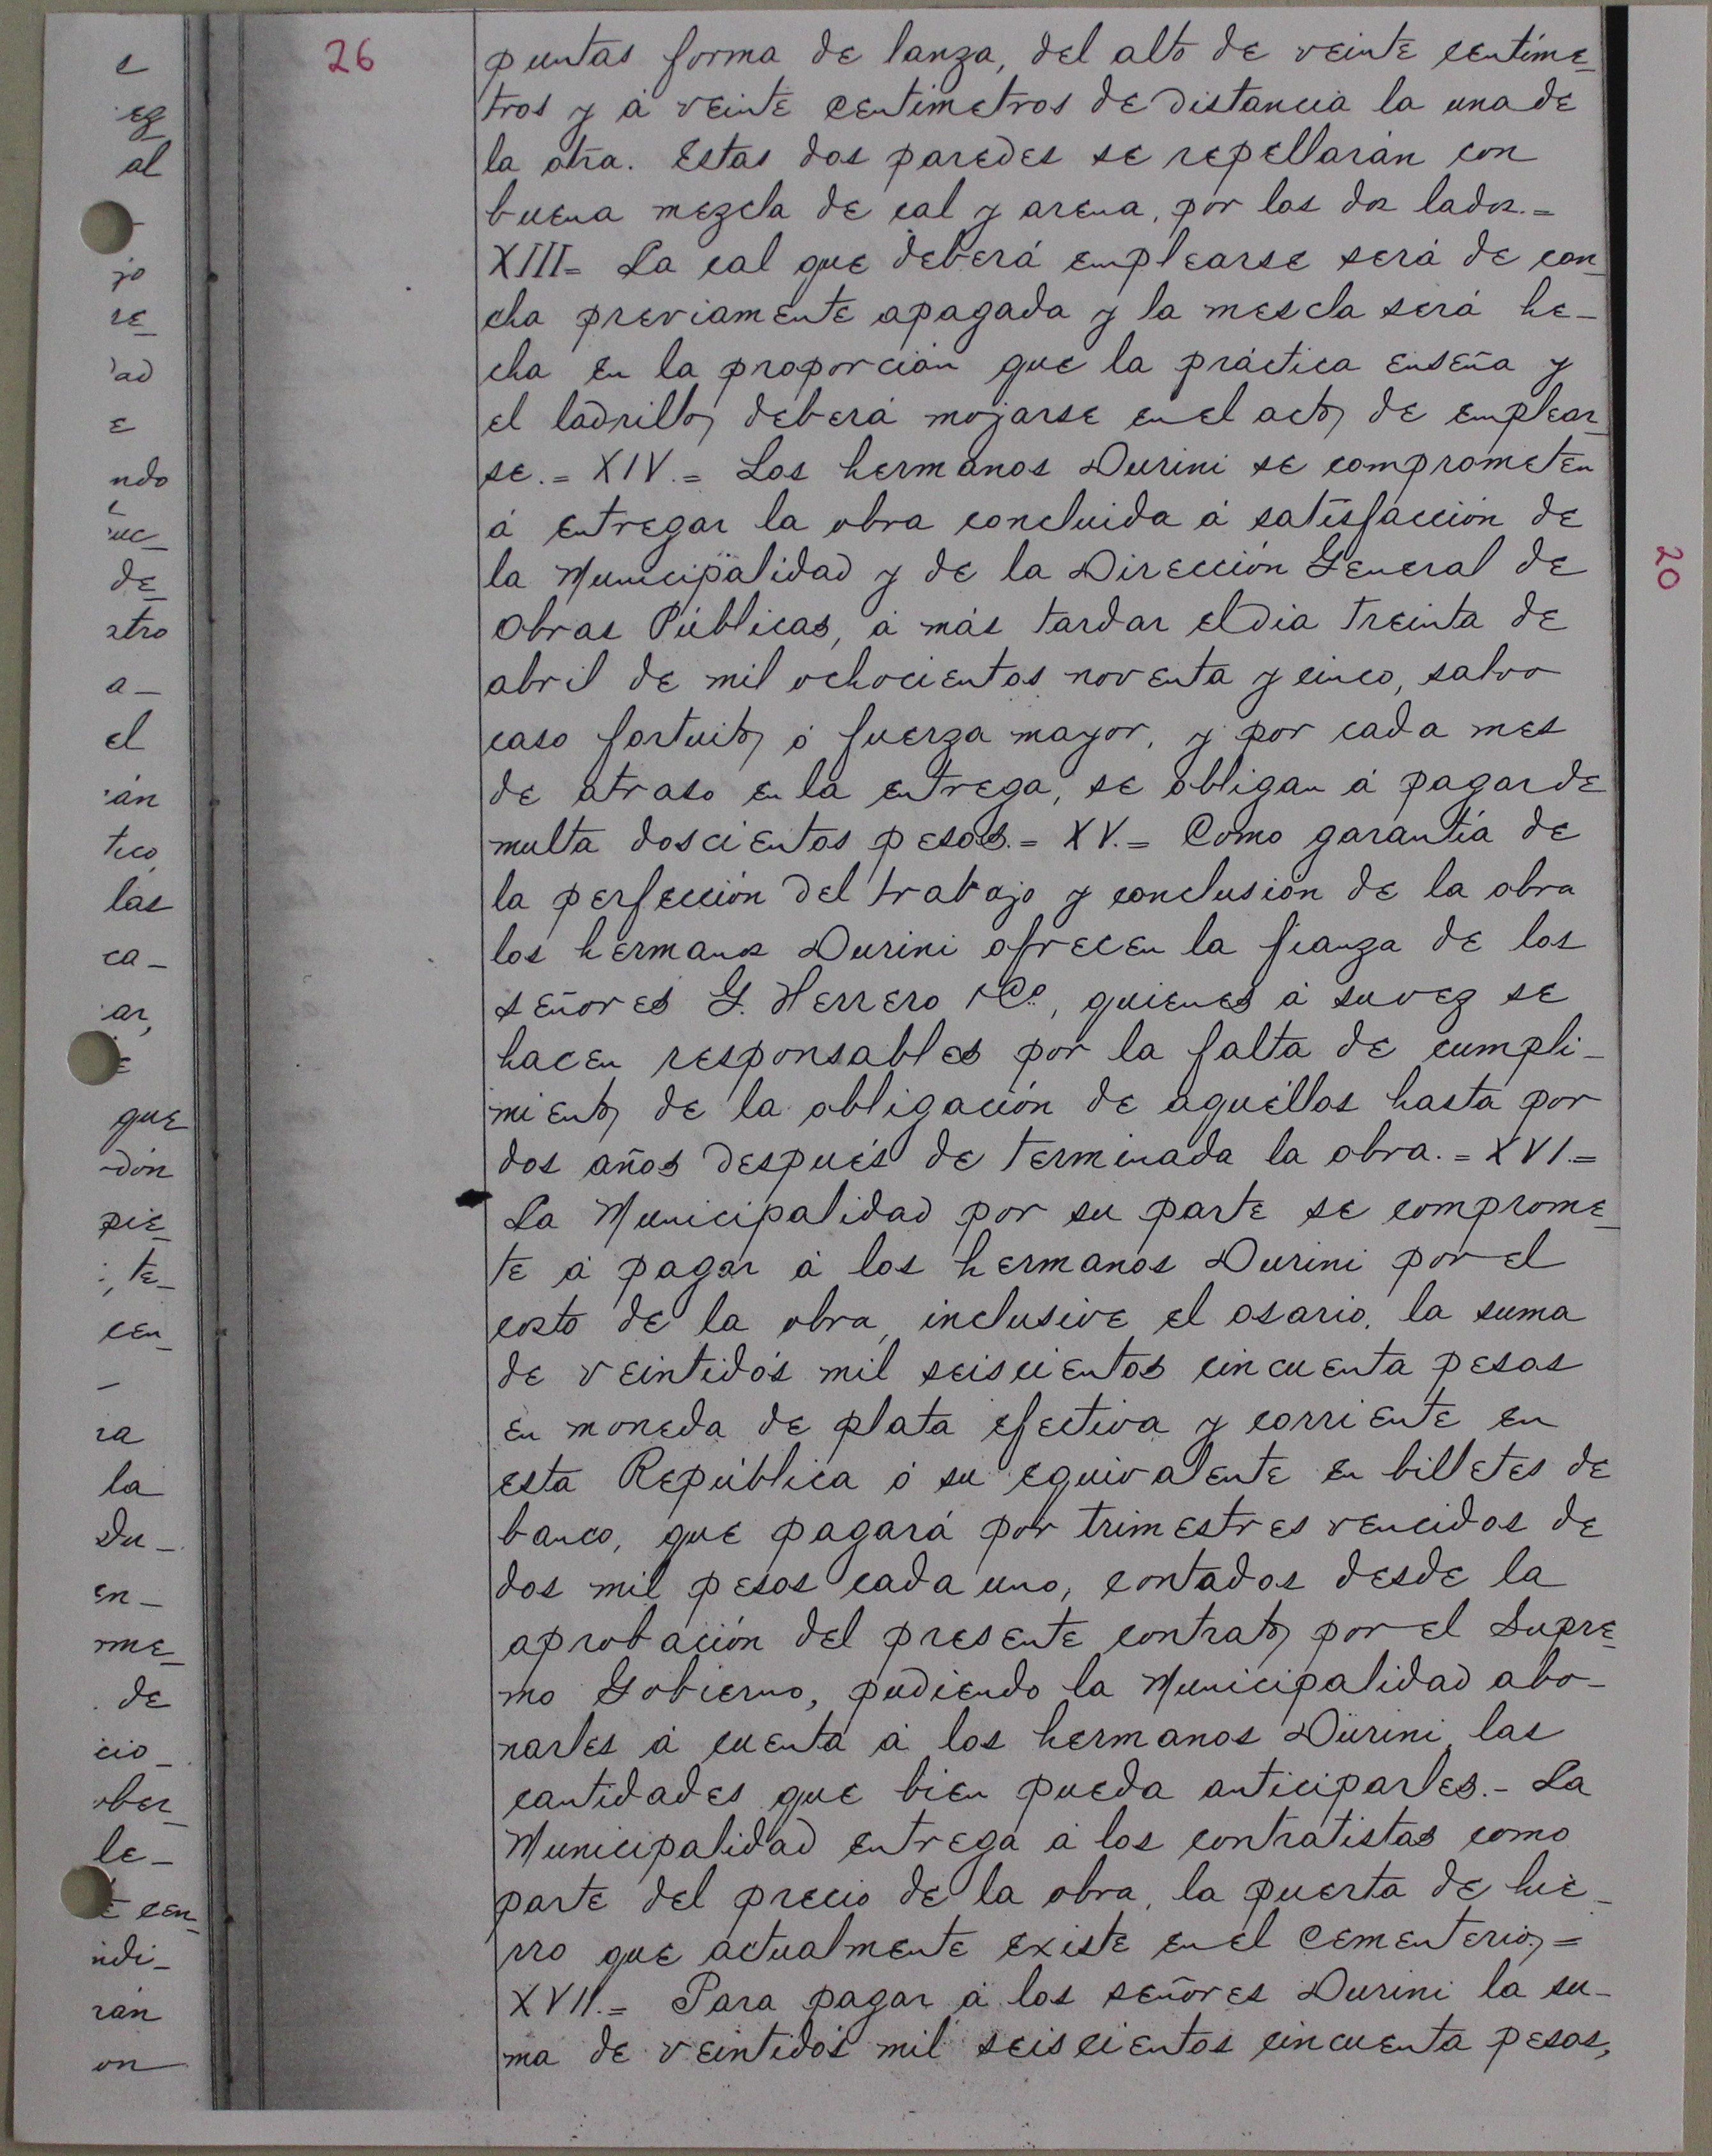 26
puntas forma de lanza, del alto de veinte centíme-
tros y á veinte centímetros de distancia la una de
la otra. Estas dos paredes se repellarán con
buena mezcla de cal y arena, por los dos lados.=
XIII= La cal que deberá emplearse será de con-
cha previamente apagada y la mescla será he-
cha en la proporción que la práctica enseña y
el ladrillo, deberá mojarse en el acto, de emplear-
se.= XIV.= Los hermanos Durini se comprometen
á entregar la obra concluida á satisfacción de
la Municipalidad y de la Dirección General de
Obras Públicas, á más tardar el dia treinta de
abril de mil ochocientos noventa y cinco, salvo
caso fortuito, ó fuerza mayor, y por cada mes
de atraso en la entrega, se obligan á pagar de
multa doscientos pesos.= XV.= Como garantía de
la perfección del trabajo y conclusión de la obra
los hermanos Durini ofrecen la fianza de los
señores G. Herrero &Cº, quienes á su vez se
hacen responsables por la falta de cumpli-
miento, de la obligación de aquéllos hasta por
dos años después de terminada la obra.= XVI.=
La Municipalidad por su parte se comprome-
te á pagar á los hermanos Durini por el
costo de la obra, inclusive el osario, la suma
de veintidós mil seiscientos cincuenta pesos
en moneda de plata efectiva y corriente en
esta República ó su equivalente en billetes de
banco, que pagará por trimestres vencidos de
dos mil pesos cada uno, contados desde la
aprobación del presente contrato, por el Supre-
mo Gobierno, pudiendo la Municipalidad abo-
narles á cuenta á los hermanos Durini, las
cantidades que bien pueda anticiparles.- La
Municipalidad entrega á los contratistas como
parte del precio de la obra, la puerta de hie-
rro que actualmente existe en el Cementerio,=
XVII.= Para pagar á los señores Durini la su-
ma de veintidós mil seiscientos cincuenta pesos,
20
e
ez
al
jo
re-
dad
e
ndo
uc-
de-
atro
a-
el
ián
tico
las
ca-
ar,
e
que
dón
pie-
; te-
cen-
-
ra
la
Du-
en-
rme-
de
cio-
ober-
le-
e cen-
ndi-
rán
on